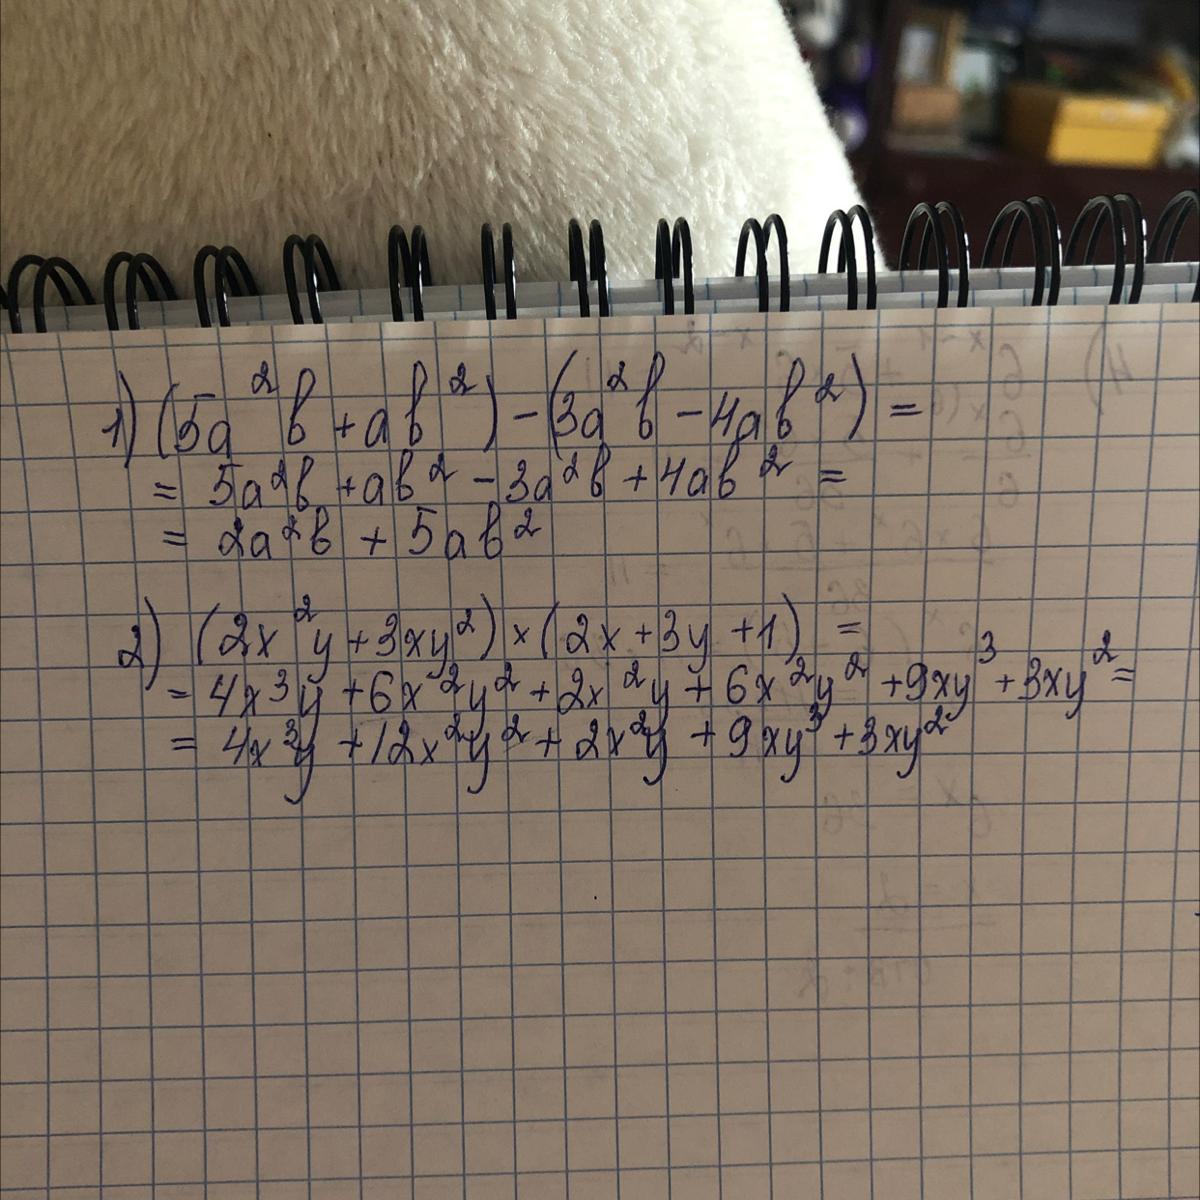 1) (5a²b + ab²) - (3a²b - 4ab²) =
= 5a²b + ab² - 3a²b + 4ab² =
= 2a²b + 5ab²
2) (2x²y + 3xy²) × (2x + 3y + 1) =
= 4x³y + 6x²y² + 2x²y + 6x²y² + 9xy³ + 3xy² =
= 4x³y + 12x²y² + 2x²y + 9xy³ + 3xy²